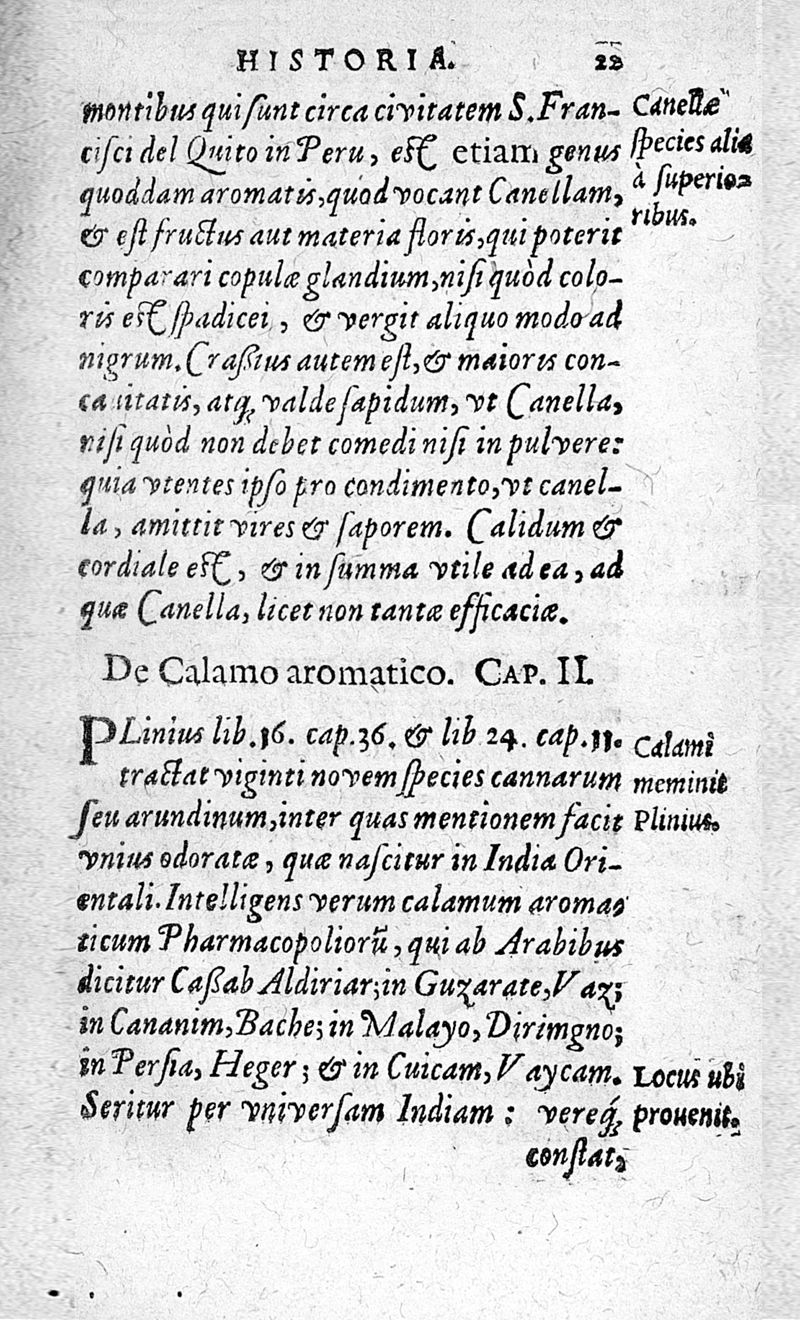 HISTORIA. 22
montibus qui ſunt circa civitatem S. Fran-
ciſci del Quito in Peru, eſt etiam genus
quoddam aromatis, quod vocant Canellam,
& eſt fructus aut materia floris, qui poterit
comparari copulæ glandium, niſi quòd colo-
ris eſt ſpadicei, & vergit aliquo modo ad
nigrum. Craßius autem eſt, & maioris con-
cavitatis, atq; valde ſapidum, vt Canella,
niſi quòd non debet comedi niſi in pulvere:
quia vtentes ipſo pro condimento, vt canel-
la, amittit vires & ſaporem. Calidum &
cordiale eſt, & in ſumma vtile ad ea, ad
quæ Canella, licet non tantæ efficaciæ.
Canellæ
ſpecies aliæ
à ſuperio-
ribus.
De Calamo aromatico. CAP. II.
PLinius lib. 16. cap. 36. & lib 24. cap. 11.
tractat viginti novem ſpecies cannarum
ſeu arundinum, inter quas mentionem facit
vnius odoratæ, quæ naſcitur in India Ori-
entali. Intelligens verum calamum aroma-
ticum Pharmacopoliorũ, qui ab Arabibus
dicitur Caßab Aldiriar; in Guzarate, Vaz;
in Cananim, Bache; in Malayo, Dirimgno;
in Perſia, Heger; & in Cuicam, Vaycam.
Seritur per vniverſam Indiam: vereq́;
Calami
meminit
Plinius.
Locus ubi
prouenit.
conſtat,